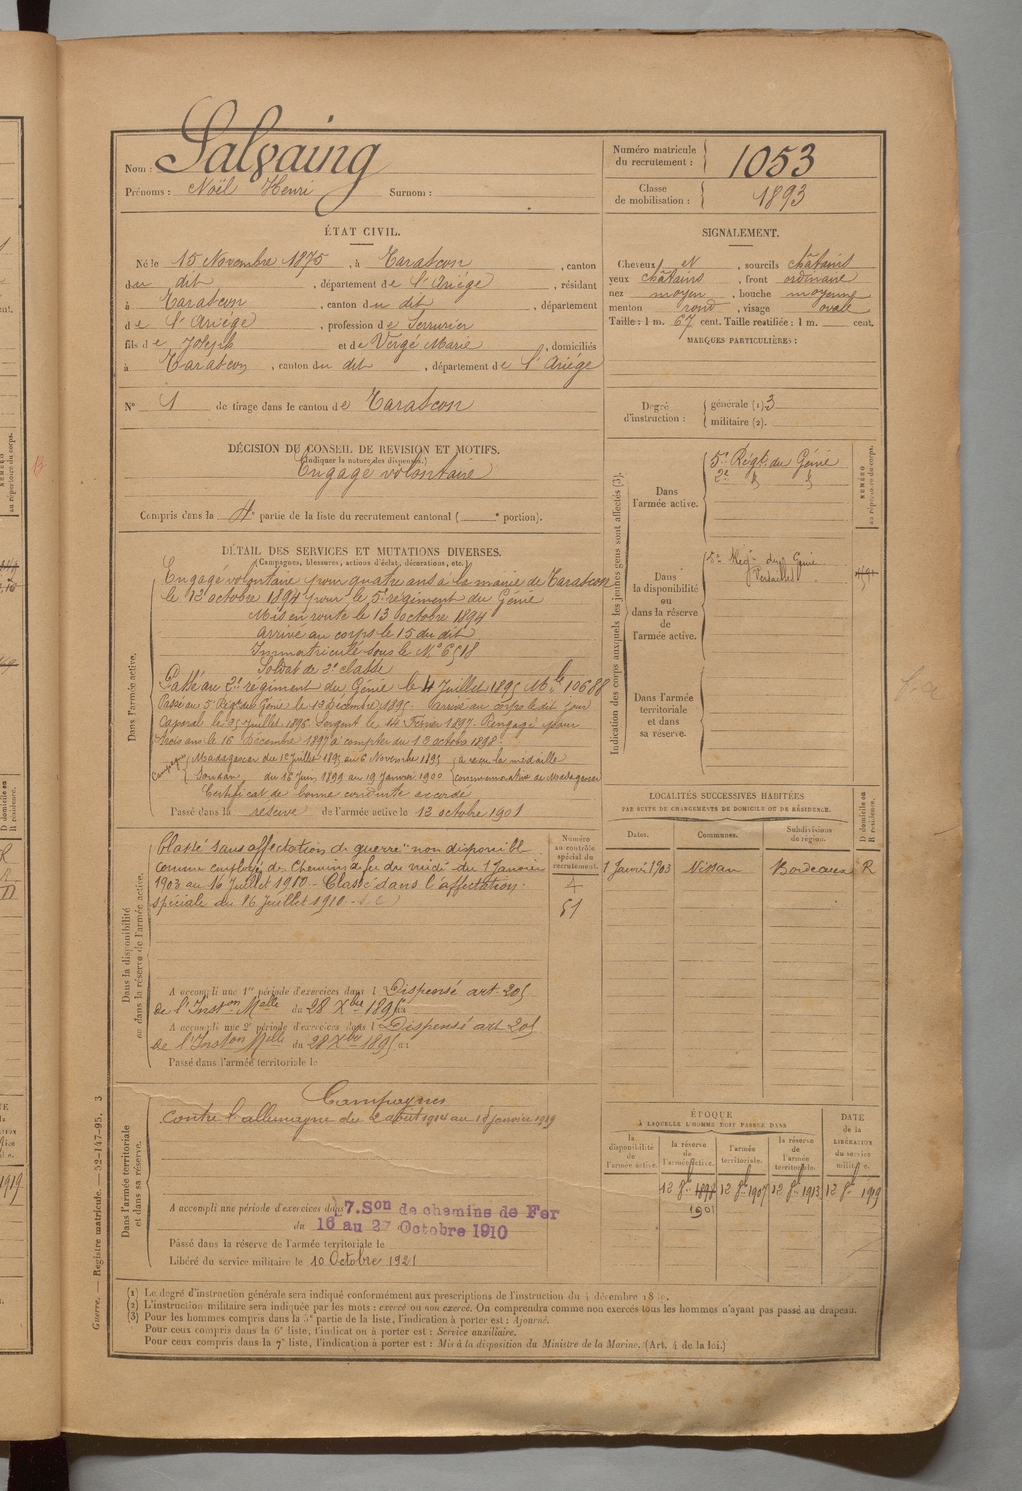 Nom : Salvaing
Prénoms : Noël Henri Surnom :
Numéro matricule du recrutement : 1053
Classe de mobilisation : 1893
ÉTAT CIVIL.
Né le 15 Novembre 1875, à Tarascon, canton
du dit, département de l'Ariége, résidant
à Tarascon, canton du dit, département
de l'Ariége, profession de Serrurier
fils de Joseph et de Vergé Marie, domiciliés
à Tarascon, canton du dit, département de l'Ariége
N° 1 de tirage dans le canton de Tarascon
SIGNALEMENT.
Cheveux et, sourcils châtains
yeux châtains, front ordinaire
nez moyen, bouche moyenne
menton rond, visage ovale
Taille : 1 m. 67 cent. Taille rectifiée : 1 m. cent.
MARQUES PARTICULIÈRES :
Degré d'instruction : générale (1). 3
militaire (2).
DÉCISION DU CONSEIL DE REVISION ET MOTIFS.
(Indiquer la nature des dispenses.)
Engagé volontaire
Compris dans la 4e partie de la liste du recrutement cantonal ( e portion).
DÉTAIL DES SERVICES ET MUTATIONS DIVERSES.
(Campagnes, blessures, actions d'éclat, décorations, etc.)
Dans l'armée active.
Engagé volontaire pour quatre ans à la mairie de Tarascon
le 13 octobre 1894 pour le 5e régiment du Génie
Mis en route le 13 octobre 1894
Arrivé au corps le 15 du dit
Immatriculé sous le N° 6518
Soldat de 2e classe
Passé au 2e régiment du Génie le 4 Juillet 1895 Mle 10688
Passé au 5e Régt du Génie le 13 décembre 1895. Arrivé au corps le dit jour
Caporal le 25 Juillet 1896 Sergent le 14 Février 1897. Rengagé pour
trois ans le 16 Décembre 1897 à compter du 13 octobre 1898
Madagascar du 1er Juillet 1895 au 6 Novembre 1895
Soudan du 16 Juin 1899 au 19 Janvier 1900
a reçu la médaille
commémorative de Madagascar
Certificat de bonne conduite accordé
Passé dans la réserve de l'armée active le 13 octobre 1901
Indication des corps auxquels les jeunes gens sont affectés (3).
Dans l'armée active.
5e Régt du Génie
2e
NUMÉRO au répertoire du corps.
Dans la disponibilité ou dans la réserve de l'armée active.
5e Régt du Génie
Dans l'armée territoriale et dans sa réserve.
Dans la disponibilité ou dans la réserve de l'armée active.
Classé sans affectation de guerre "non disponible
comme employé des Chemins de fer du midi du 1 Janvier
1903 au 16 Juillet 1910 - Classé dans l'affectation
spéciale du 16 Juillet 1910 -
Numéro au contrôle spécial du recrutement.
4
51
A accompli une 1re période d'exercices dans l Dispensé art. 205
de l'Inston Melle du 28 Xbre 1895 au
A accompli une 2e période d'exercices dans l Dispensé art 205
de l'Inston Melle du 28 Xbre 1895 au
Passé dans l'armée territoriale le
LOCALITÉS SUCCESSIVES HABITÉES
PAR SUITE DE CHANGEMENTS DE DOMICILE OU DE RÉSIDENCE.
Dates. Communes. Subdivisions de région. D domicile ou R résidence.
1 Janvier 1903 Nissan Bordeaux R
Dans l'armée territoriale et dans sa réserve.
Campagnes
Contre l'allemagne du 2 août 1914 au 15 janvier 1919
A accompli une période d'exercices dans
7. Son de chemins de Fer
du 16 au 27 Octobre 1910
Passé dans la réserve de l'armée territoriale le
Libéré du service militaire le 10 Octobre 1921
ÉPOQUE
À LAQUELLE L'HOMME DOIT PASSER DANS
la disponibilité de l'armée active. la réserve de l'armée active. l'armée territoriale. la réserve de l'armée territoriale.
DATE de la LIBÉRATION du service militaire.
12 8bre 1898 12 8bre 1907 12 8bre 1913 12 8bre 1919
1901
(1) Le degré d'instruction générale sera indiqué conformément aux prescriptions de l'instruction du 4 décembre
(2) L'instruction militaire sera indiquée par les mots : exercé ou non exercé. On comprendra comme non exercés tous les hommes n'ayant pas passé au drapeau.
(3) Pour les hommes compris dans la 5e partie de la liste, l'indication à porter est : Ajourné.
Pour ceux compris dans la 6e liste, l'indication à porter est : Service auxiliaire.
Pour ceux compris dans la 7e liste, l'indication à porter est : Mis à la disposition du Ministre de la Marine. (Art. 4 de la loi.)
Guerre. — Registre matricule. — 52-147-95. 3